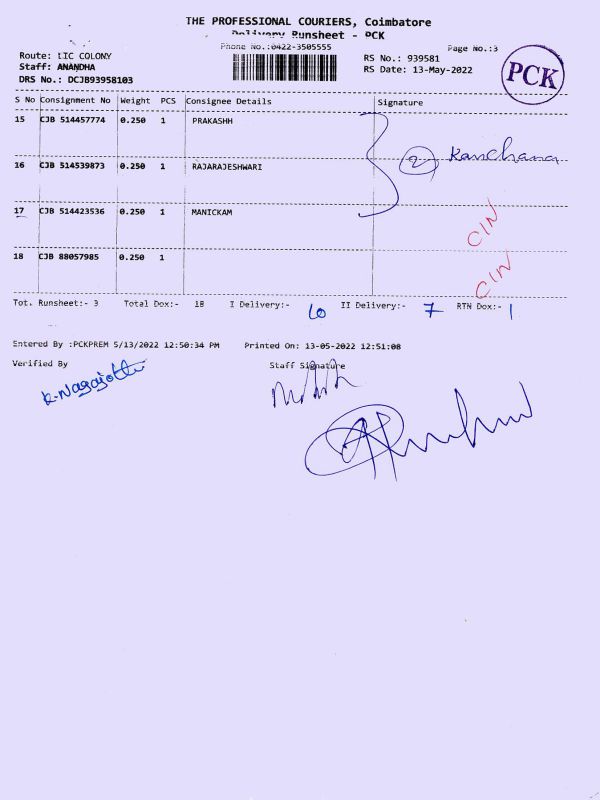 THE PROFESSIONAL COURIERS, Coimbatore
Delivery Runsheet - PCK
Phone No.:0422-3505555
Page No.:3
Route: LIC COLONY
RS No.: 939581
Staff: ANANDHA
RS Date: 13-May-2022
DRS No.: DCJB93958103
PCK
S No Consignment No Weight PCS Consignee Details Signature
15 CJB 514457774 0.250 1 PRAKASHH
16 CJB 514539873 0.250 1 RAJARAJESHWARI
2 Kanchana
17 CJB 514423536 0.250 1 MANICKAM
C/N
18 CJB 88057985 0.250 1
C/N
Tot. Runsheet:- 3 Total Dox:- 18 I Delivery:- 10 II Delivery:- 7 RTN Dox:- 1
Entered By :PCKPREM 5/13/2022 12:50:34 PM Printed On: 13-05-2022 12:51:08
Verified By Staff Signature
K. Nagajothi